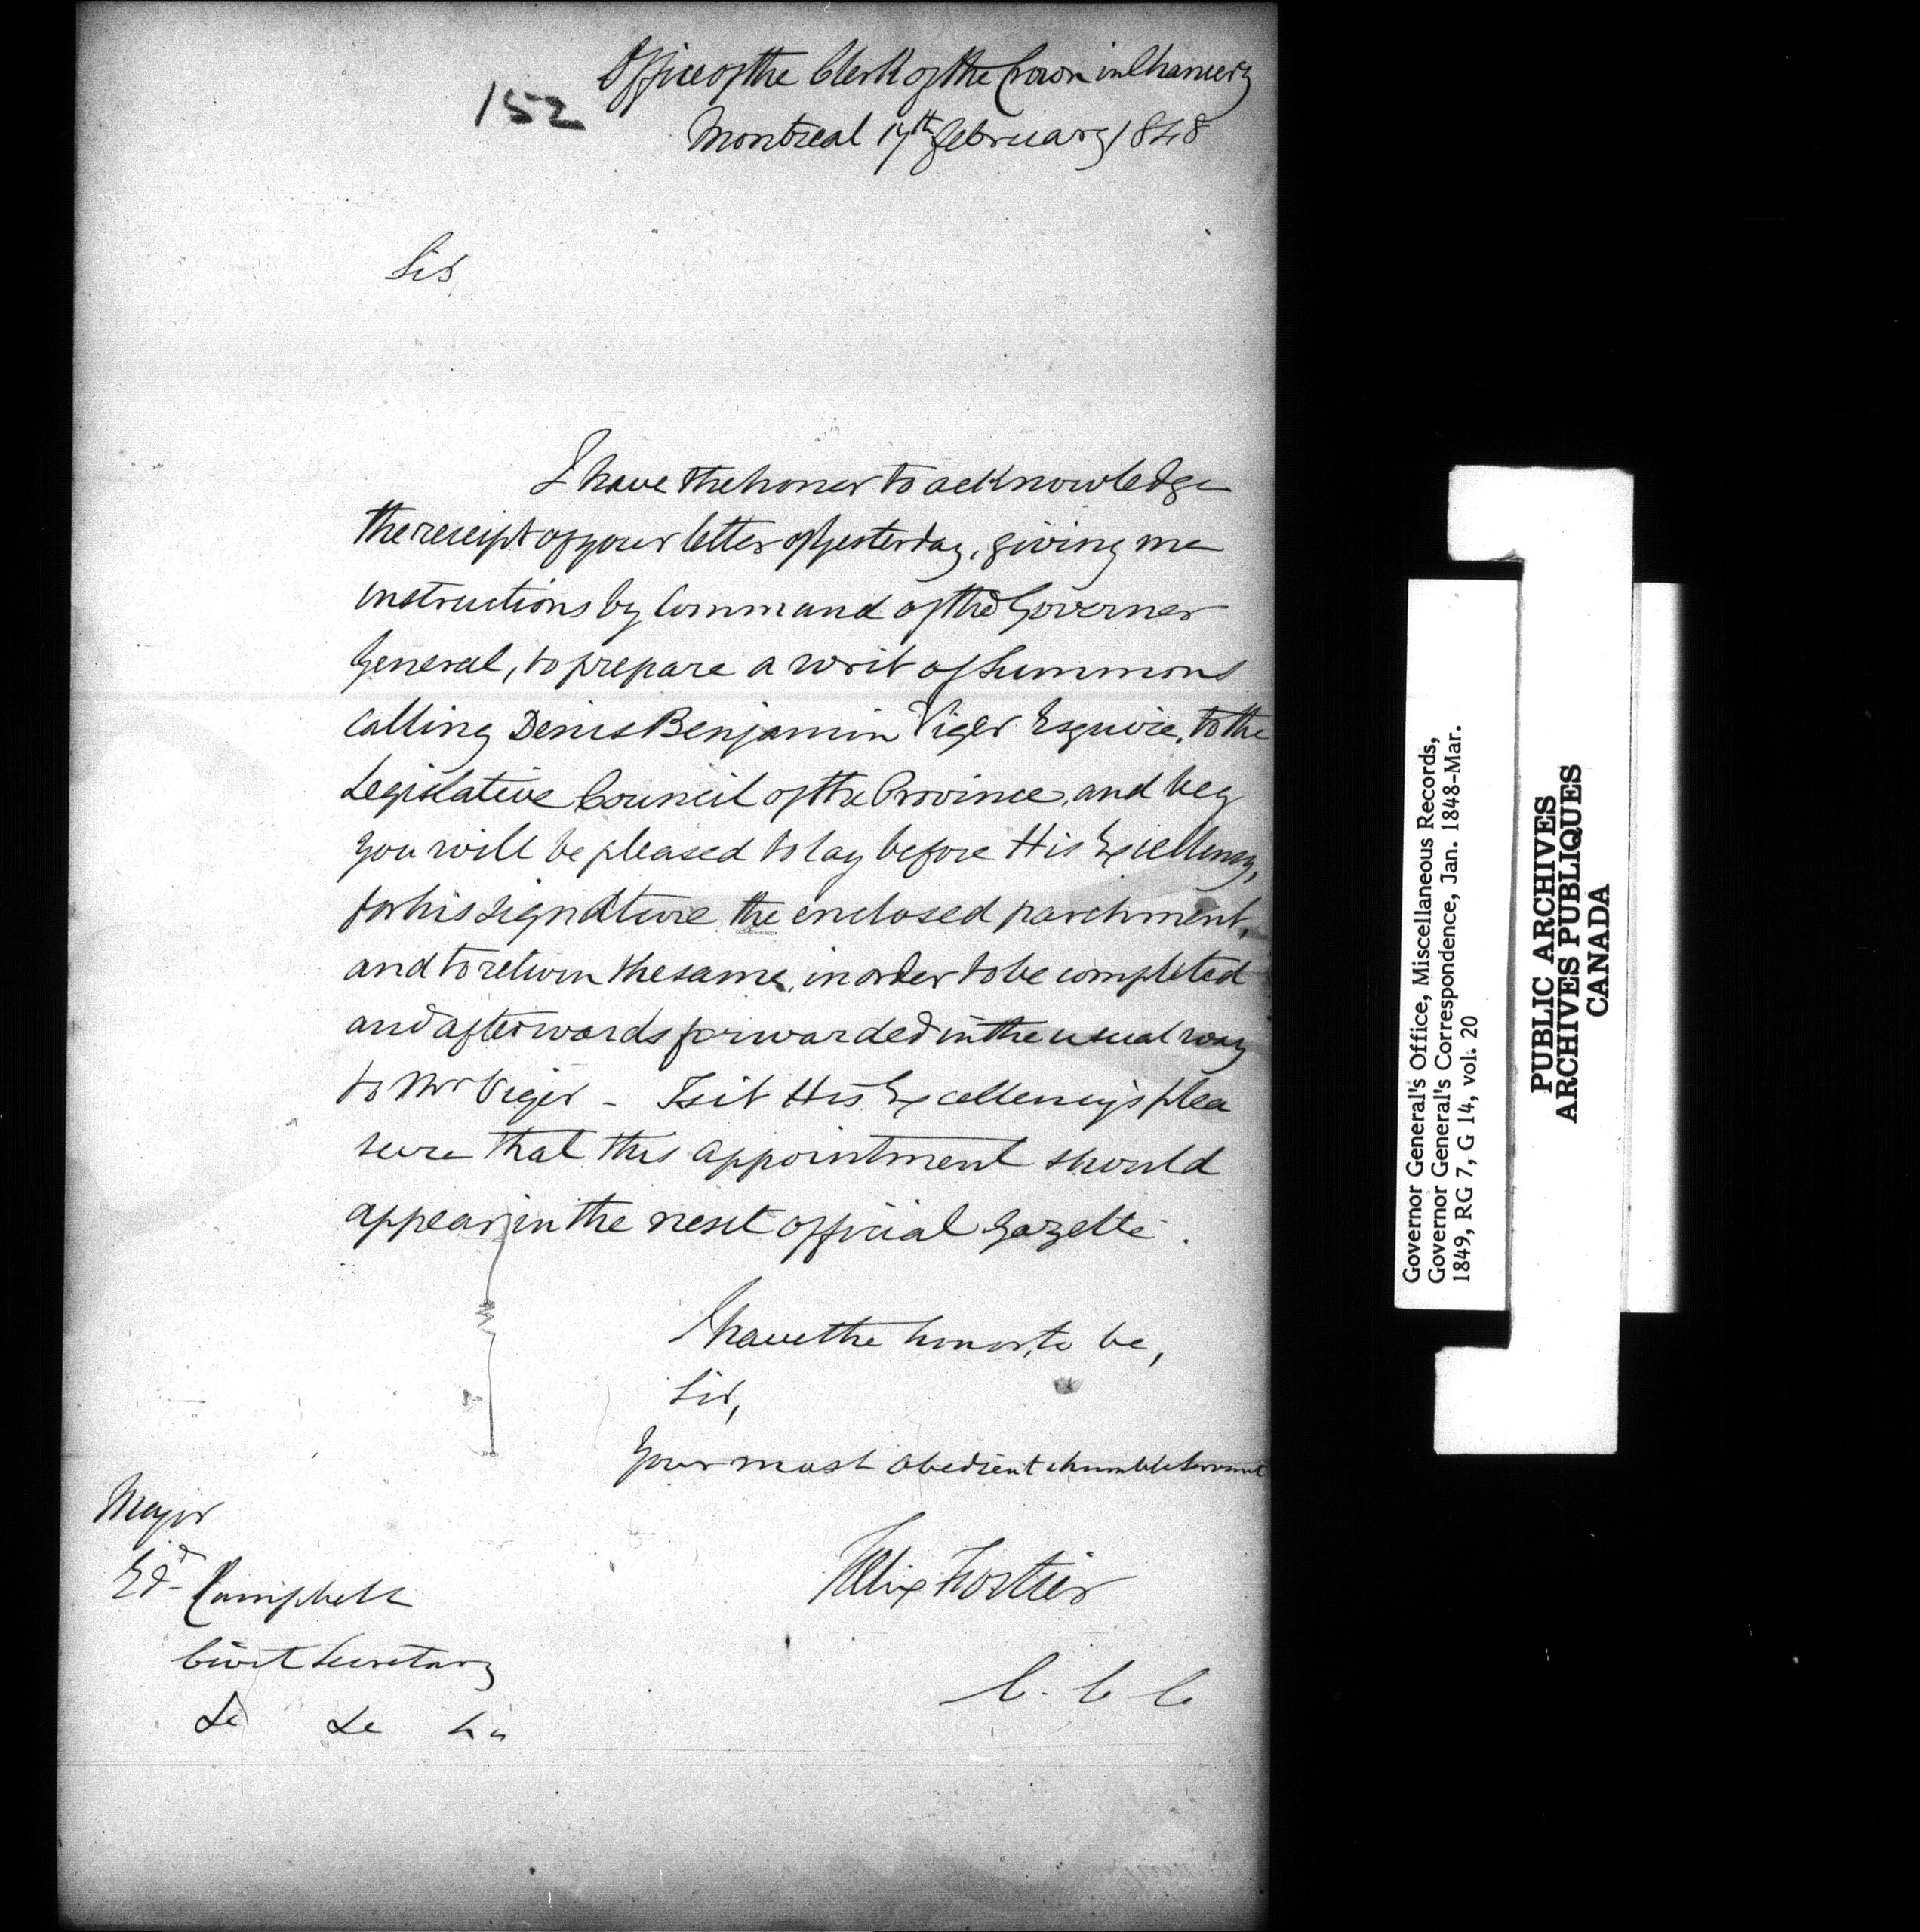 152
Office of the Clerk of the Crown in Chancery
Montreal 17th February 1848
Sir
I have the honor to acknowledge
the receipt of your letter of yesterday, giving me
instructions by Command of the Governor
General, to prepare a writ of Summons
calling Denis Benjamin Viger Esquire, to the
Legislative Council of the Province, and beg
you will be pleased to lay before His Excellency,
for his signature the enclosed parchment,
and to return the same, in order to be completed
and afterwards forwarded in the usual way
to Mr Viger - Is it His Excellency's plea
sure that this appointment should
appear in the next official Gazette.
I have the honor, to be,
Sir,
Your most obedient & humble Servant
Felix Fortier
C. C. C.
Major
Ed. Campbell
Civil Secretary
&c &c &c
Governor General's Office, Miscellaneous Records,
Governor General's Correspondence, Jan. 1848-Mar.
1849, RG 7, G 14, vol. 20
PUBLIC ARCHIVES
ARCHIVES PUBLIQUES
CANADA